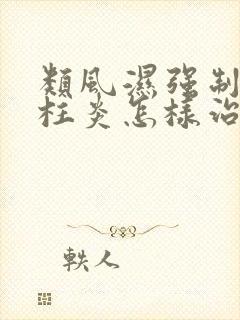 類風濕强制
柱炎怎樣治
軼人